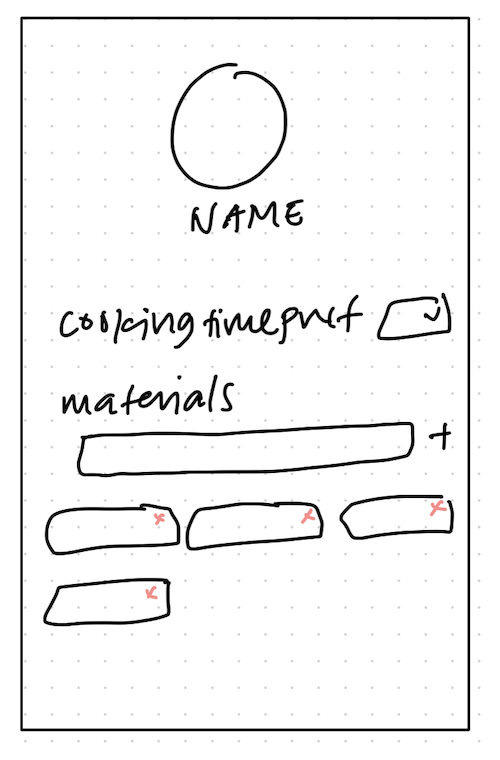 NAME
cooking time pref
materials
+
x x x
x